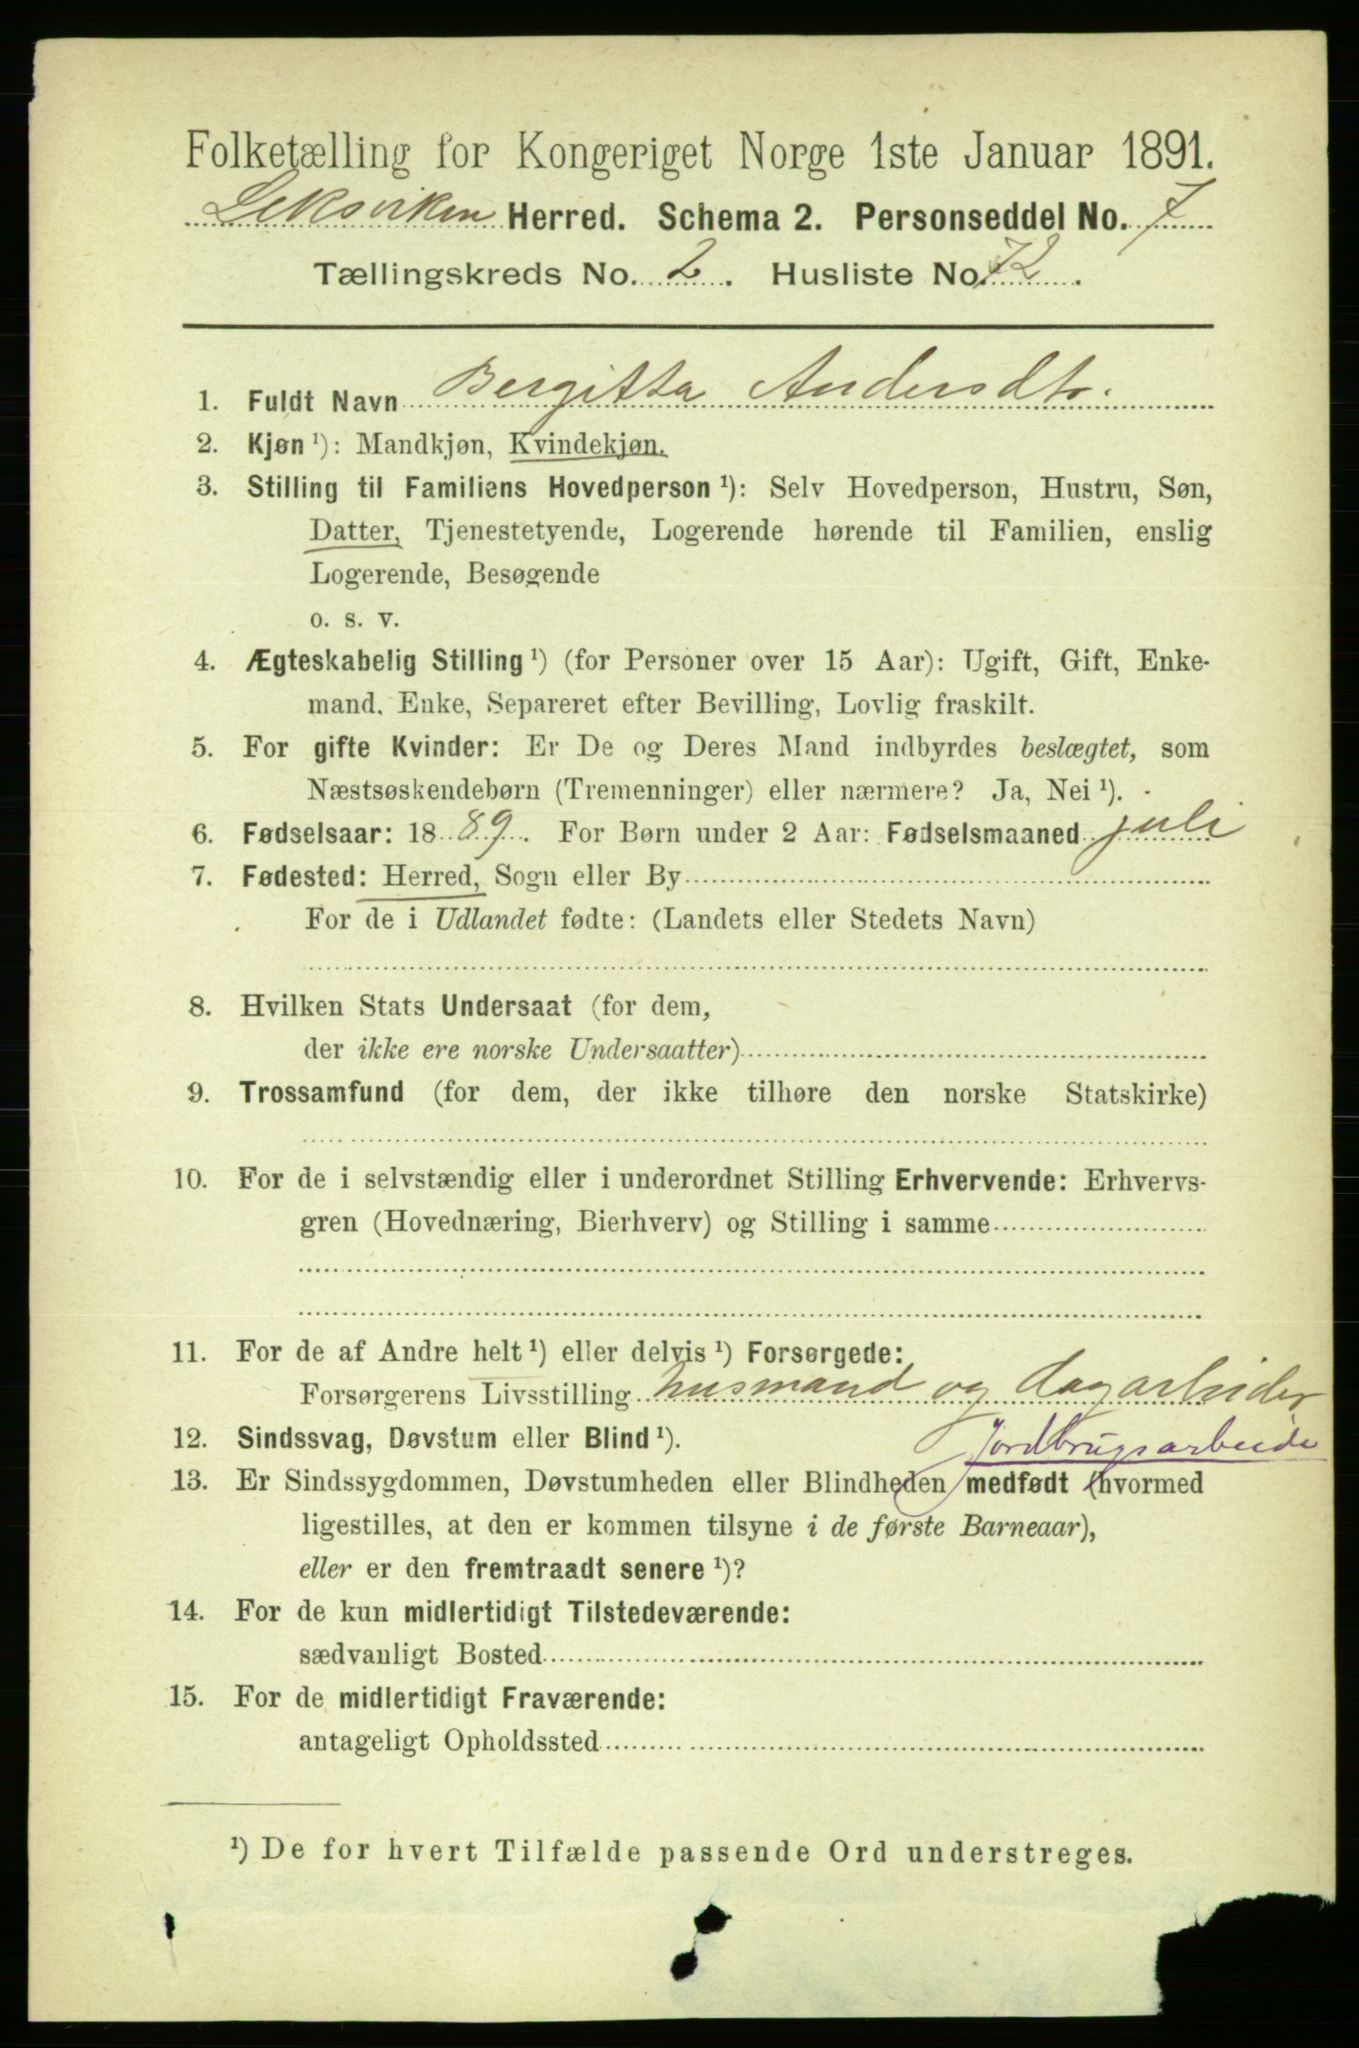 Folketælling for Kongeriget Norge 1ste Januar 1891.
Leksviken Herred. Schema 2. Personseddel No. 7
Tællingskreds No. 2. Husliste No. 72.
1. Fuldt Navn Bergitta Andersdtr.
2. Kjøn ¹): Mandkjøn, Kvindekjøn.
3. Stilling til Familiens Hovedperson ¹): Selv Hovedperson, Hustru, Søn,
Datter, Tjenestetyende, Logerende hørende til Familien, enslig
Logerende, Besøgende
o. s. v.
4. Ægteskabelig Stilling ¹) (for Personer over 15 Aar): Ugift, Gift, Enke-
mand, Enke, Separeret efter Bevilling, Lovlig fraskilt.
5. For gifte Kvinder: Er De og Deres Mand indbyrdes beslægtet, som
Næstsøskendebørn (Tremenninger) eller nærmere? Ja, Nei ¹).
6. Fødselsaar: 1889. For Børn under 2 Aar: Fødselsmaaned juli
7. Fødested: Herred, Sogn eller By
For de i Udlandet fødte: (Landets eller Stedets Navn)
8. Hvilken Stats Undersaat (for dem,
der ikke ere norske Undersaatter)
9. Trossamfund (for dem, der ikke tilhøre den norske Statskirke)
10. For de i selvstændig eller i underordnet Stilling Erhvervende: Erhvervs-
gren (Hovednæring, Bierhverv) og Stilling i samme
11. For de af Andre helt ¹) eller delvis ¹) Forsørgede:
Forsørgerens Livsstilling husmand og dagarbeider
12. Sindssvag, Døvstum eller Blind ¹). Jordbrugsarbeide
13. Er Sindssygdommen, Døvstumheden eller Blindheden medfødt (hvormed
ligestilles, at den er kommen tilsyne i de første Barneaar),
eller er den fremtraadt senere ¹)?
14. For de kun midlertidigt Tilstedeværende:
sædvanligt Bosted
15. For de midlertidigt Fraværende:
antageligt Opholdssted
¹) De for hvert Tilfælde passende Ord understreges.